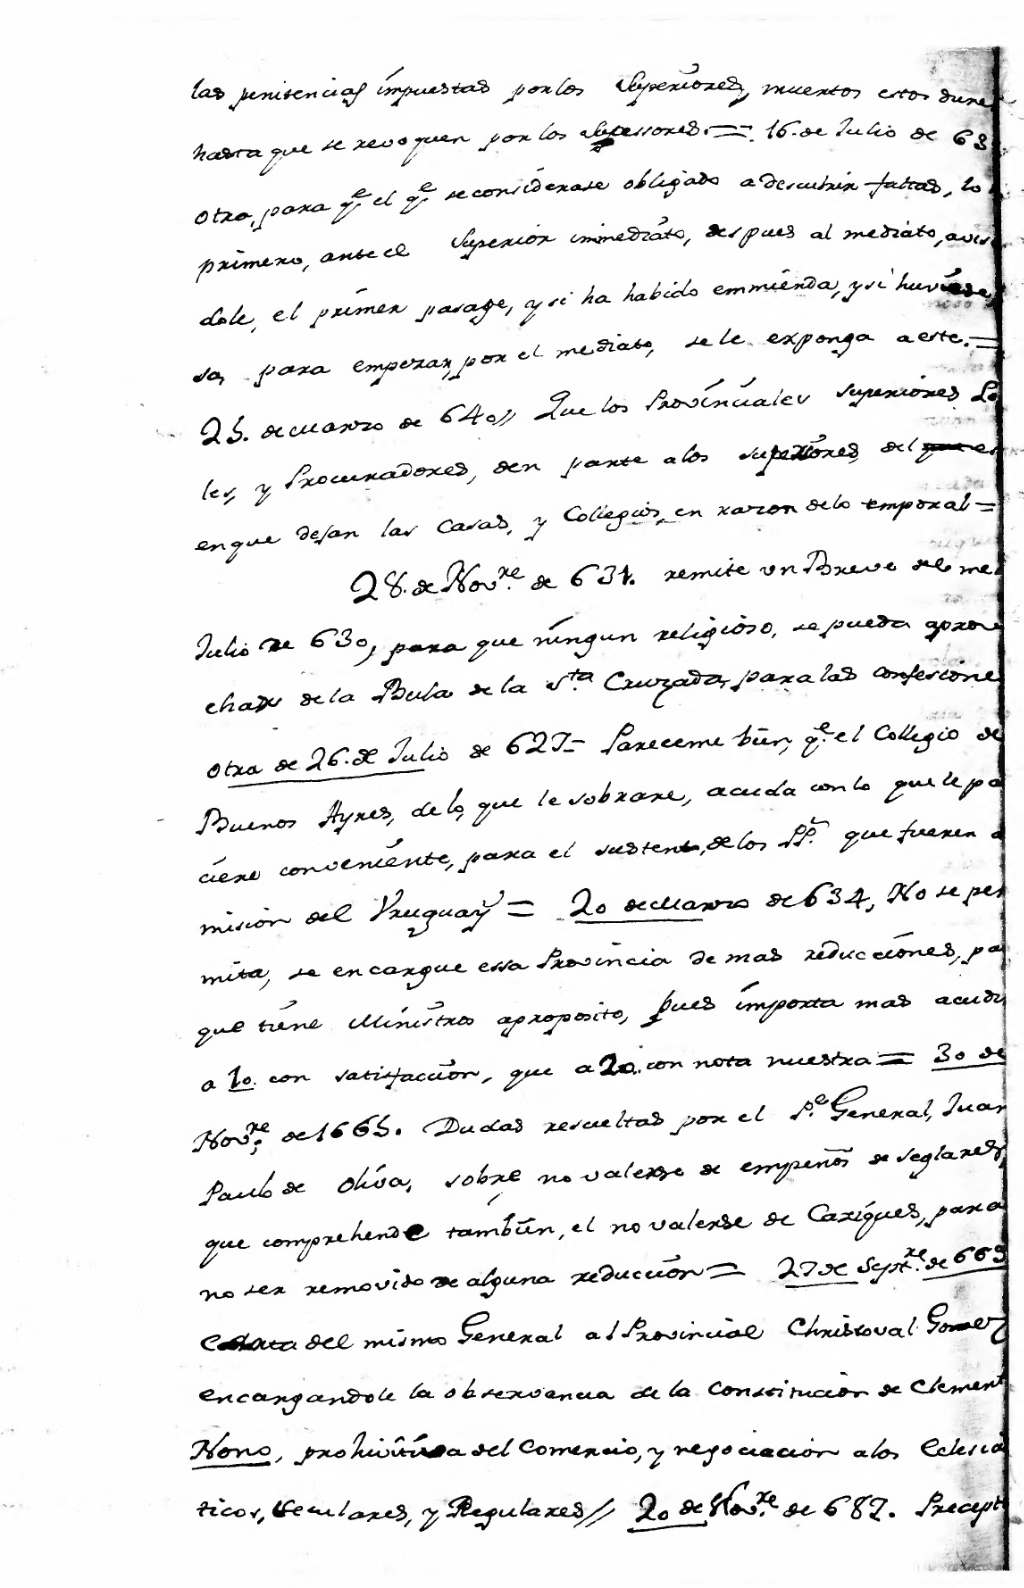 las penitencias impuestas por los Superiores, muertos estos dure
hasta que se revoquen por los Subcessores. = 16. de Julio de 63
otra, para qᵉ el qᵉ se considerase obligado a descubrir faltas, lo
primero, ante el Superior immediato, despues al mediato, avis
dole, el primer pasage, y si ha habido emmienda, y si huviese
sa, para emperar, por el mediato, se le exponga a este. =
25. de Marzo de 640// Que los Provinciales superiores Lo
les, y Procuradores, den parte a los superiores, del
en que dejan las Casas, y Collegios, en razon de lo temporal =
28. de Novʳᵉ de 631. remite un Breve de
Julio de 630, para que ningun religioso, se pueda aprove
chars de la Bula de la Sᵗᵃ Cruzada, para las confesione
otra de 26. de Julio de 627 = Pareceme bien, qᵉ el Collegio de
Buenos Ayres, de lo, que le sobrare, acuda con lo que le pa
ciere conveniente, para el sustento, de los PPˢ que fueren a
mision del Vruguaÿ = 20 de Marzo de 634, No se per
mita, se encargue essa Provincia de mas reducciones, pa
que tiene Ministros aproposito, pues importa mas acudi
a 10. con satisfaccion, que a 20. con nota nuestra = 30 de
Novʳᵉ de 1665. Dudas resueltas por el Pᵉ General, Juan
Paulo de Oliva, sobre no valerse de empeños de seglares,
que comprehende tambien, el no valerse de Caziques, para
no ser removido de alguna reduccion = 27 de Septʳᵉ de 669
Carta del mismo General al Provincial Christoval Gomez
encargandole la observancia de la Constitucion de Clement
Nono, prohivitiva del Comercio, y negociacion a los Eclesia
ticos, Seculares, y Regulares// 20 de Novʳᵉ de 687. Precept